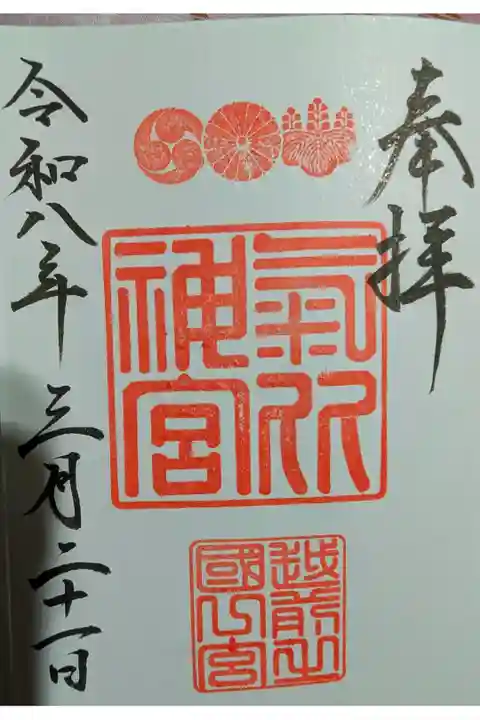 奉拝
氣比
神宮
越前之
國 宮
令和八年三月二十一日